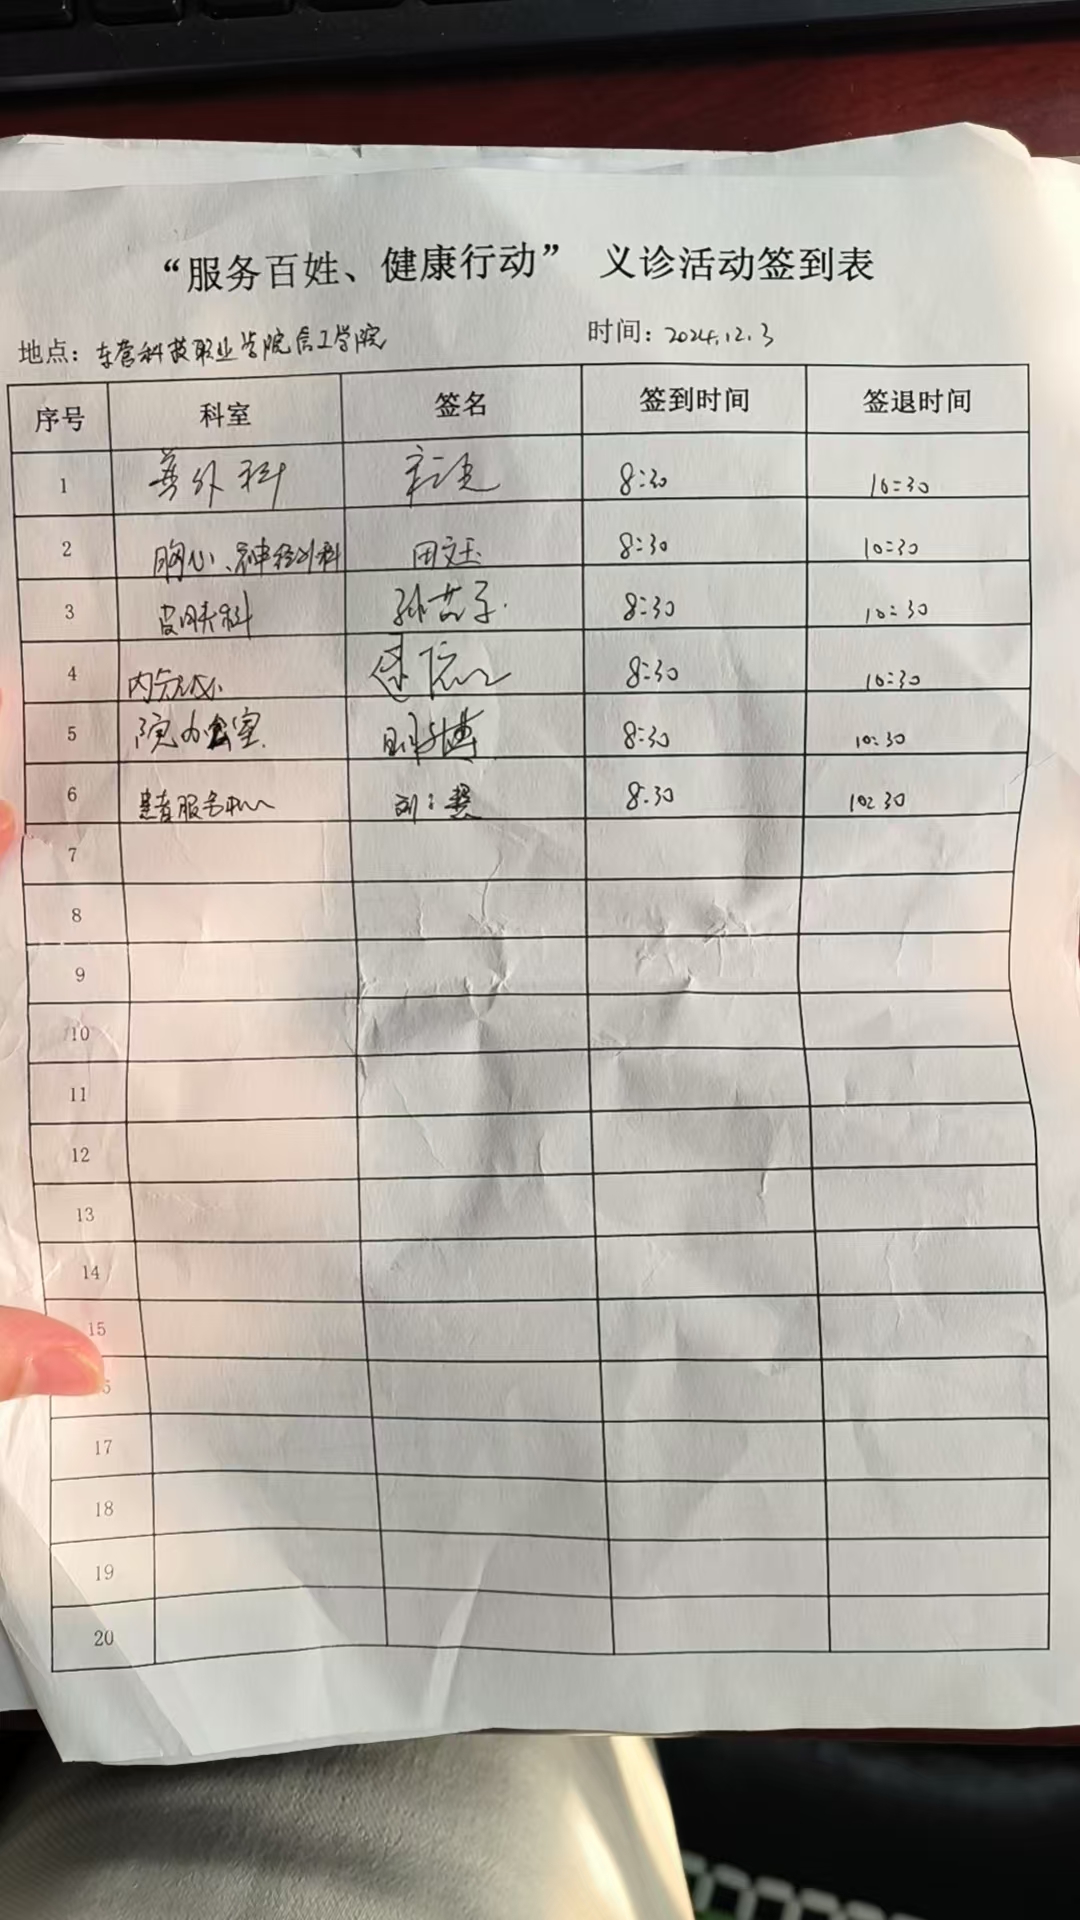 “服务百姓、健康行动” 义诊活动签到表
地点：东营科技职业学院信工学院 时间：2024.12.3
序号 科室 签名 签到时间 签退时间
1 普外科 8:30 10:30
2 胸心、神经外科 田文玉 8:30 10:30
3 皮肤科 8:30 10:30
4 内分泌 8:30 10:30
5 院办公室 8:30 10:30
6 患者服务中心 8:30 10:30
7
8
9
10
11
12
13
14
15
17
18
19
20